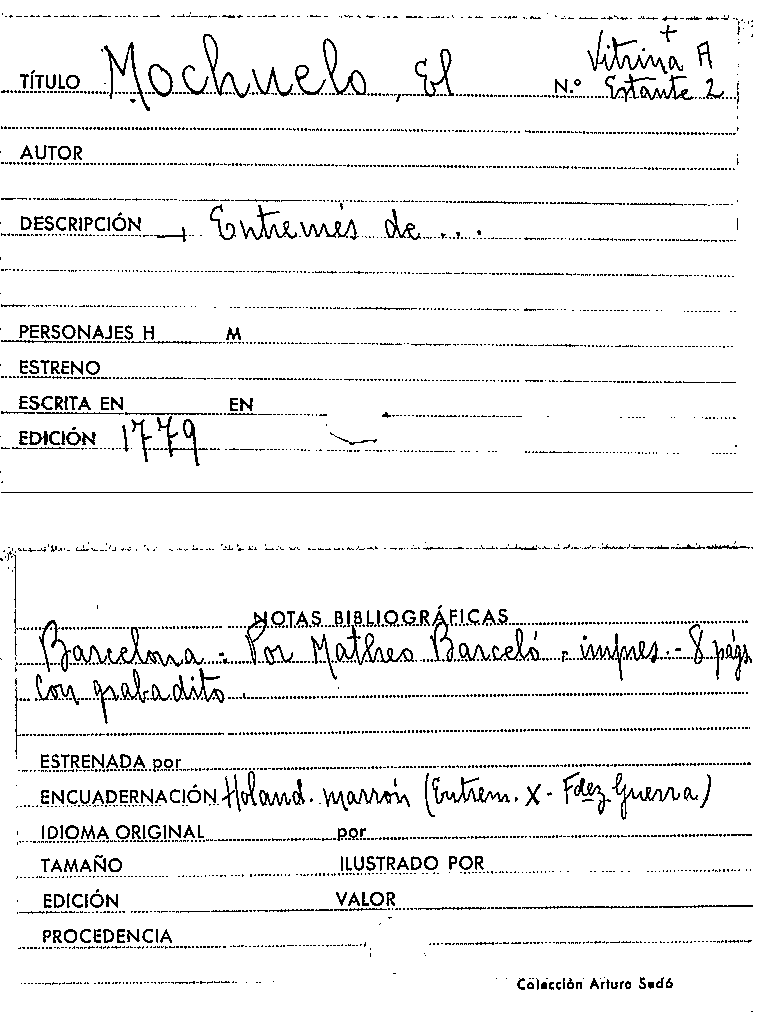 TÍTULO Mochuelo, El N.º Vitrina A +
Estante 2
AUTOR
DESCRIPCIÓN Entremés de ...
PERSONAJES H M
ESTRENO
ESCRITA EN EN
EDICIÓN 1779
NOTAS BIBLIOGRÁFICAS
Barcelona - Por Matheo Barceló - impres. - 8 págs
con grabadito.
ESTRENADA por
ENCUADERNACIÓN Holand. marrón (Entrem. X - Fdez Guerra)
IDIOMA ORIGINAL por
TAMAÑO ILUSTRADO POR
EDICIÓN VALOR
PROCEDENCIA
Colección Arturo Sedó